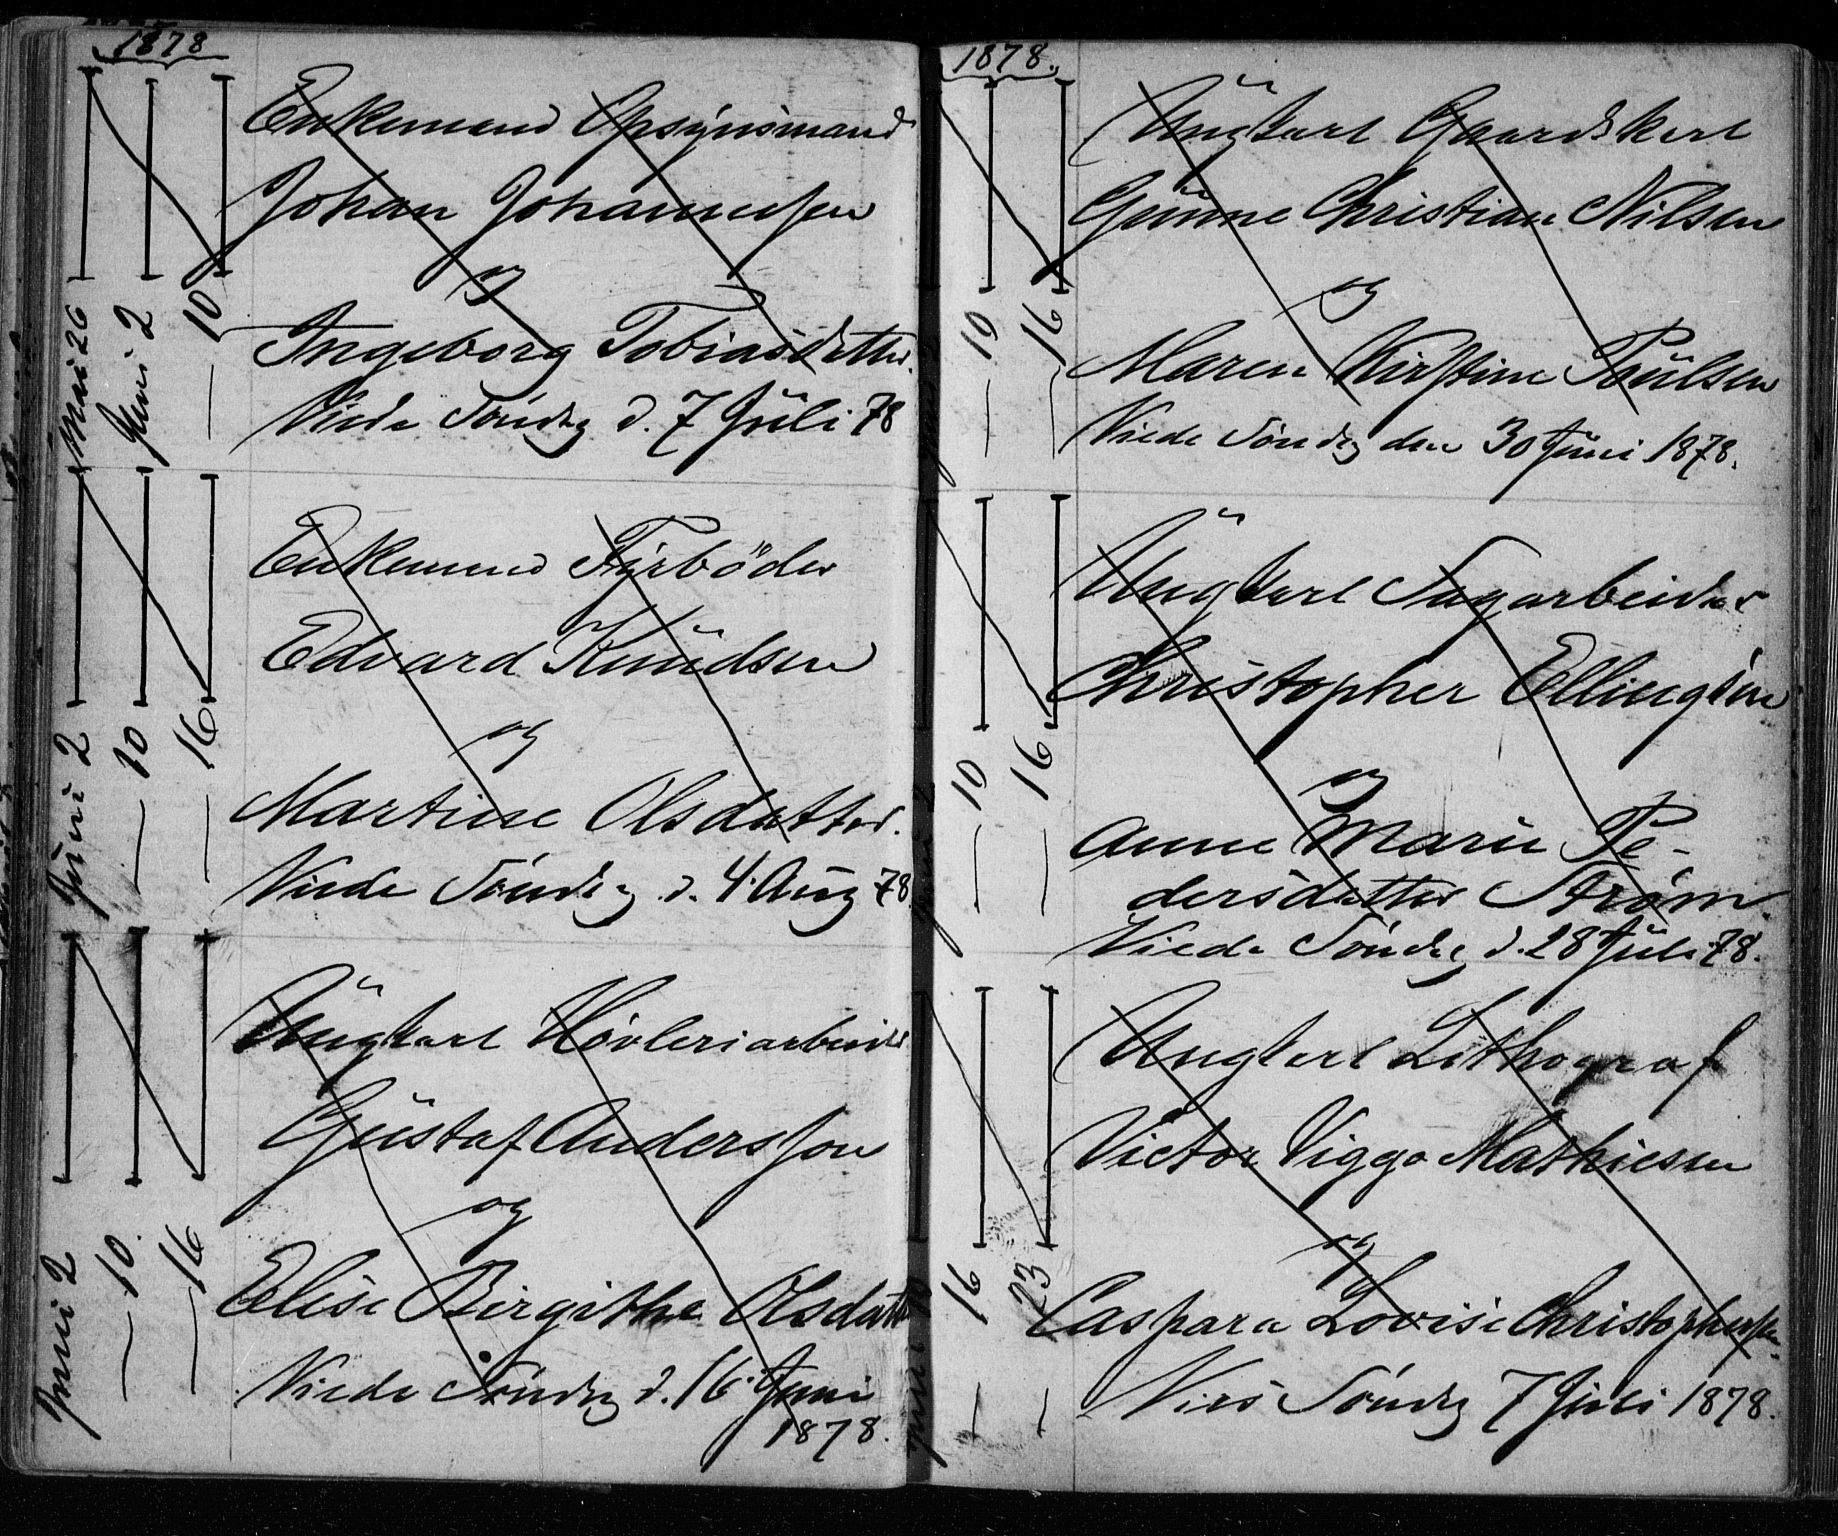 1878
Mai 26
Juni 2
10
Enkemand Opsynsmand
Johan Johannesen
og
Ingeborg Tobiasdatter.
Viede Søndag d. 7 Juli 78
Juni 2
10
16
Enkemand Fyrbøder
Edvard Knudsen
og
Martine Olsdatter.
Viede Søndag d. 4. Aug 78.
Juni 2
10.
16
Ungkarl Høvleriarbeider
Gustaf Andersson
og
Elise Birgithe Olsdatter
Viede Søndag d. 16. Juni
1878.
1878.
Juni 2
10
16
Ungkarl Gaardskarl
Gunne Christian Nilsen
og
Maren Kirstine Poulsen
Viede Søndag den 30 Juni 1878.
Juni 2
10
16
Ungkarl Sagarbeider
Christopher Ellingsen
og
Anne Marie Pe-
dersdatter Strøm.
Viede Søndag d. 28 Juli 78.
Juni 10
16
23
Ungkarl Lithograf
Victor Viggo Mathiesen
og
Caspara Lovise Christophersen.
Vied Søndag 7 Juli 1878.